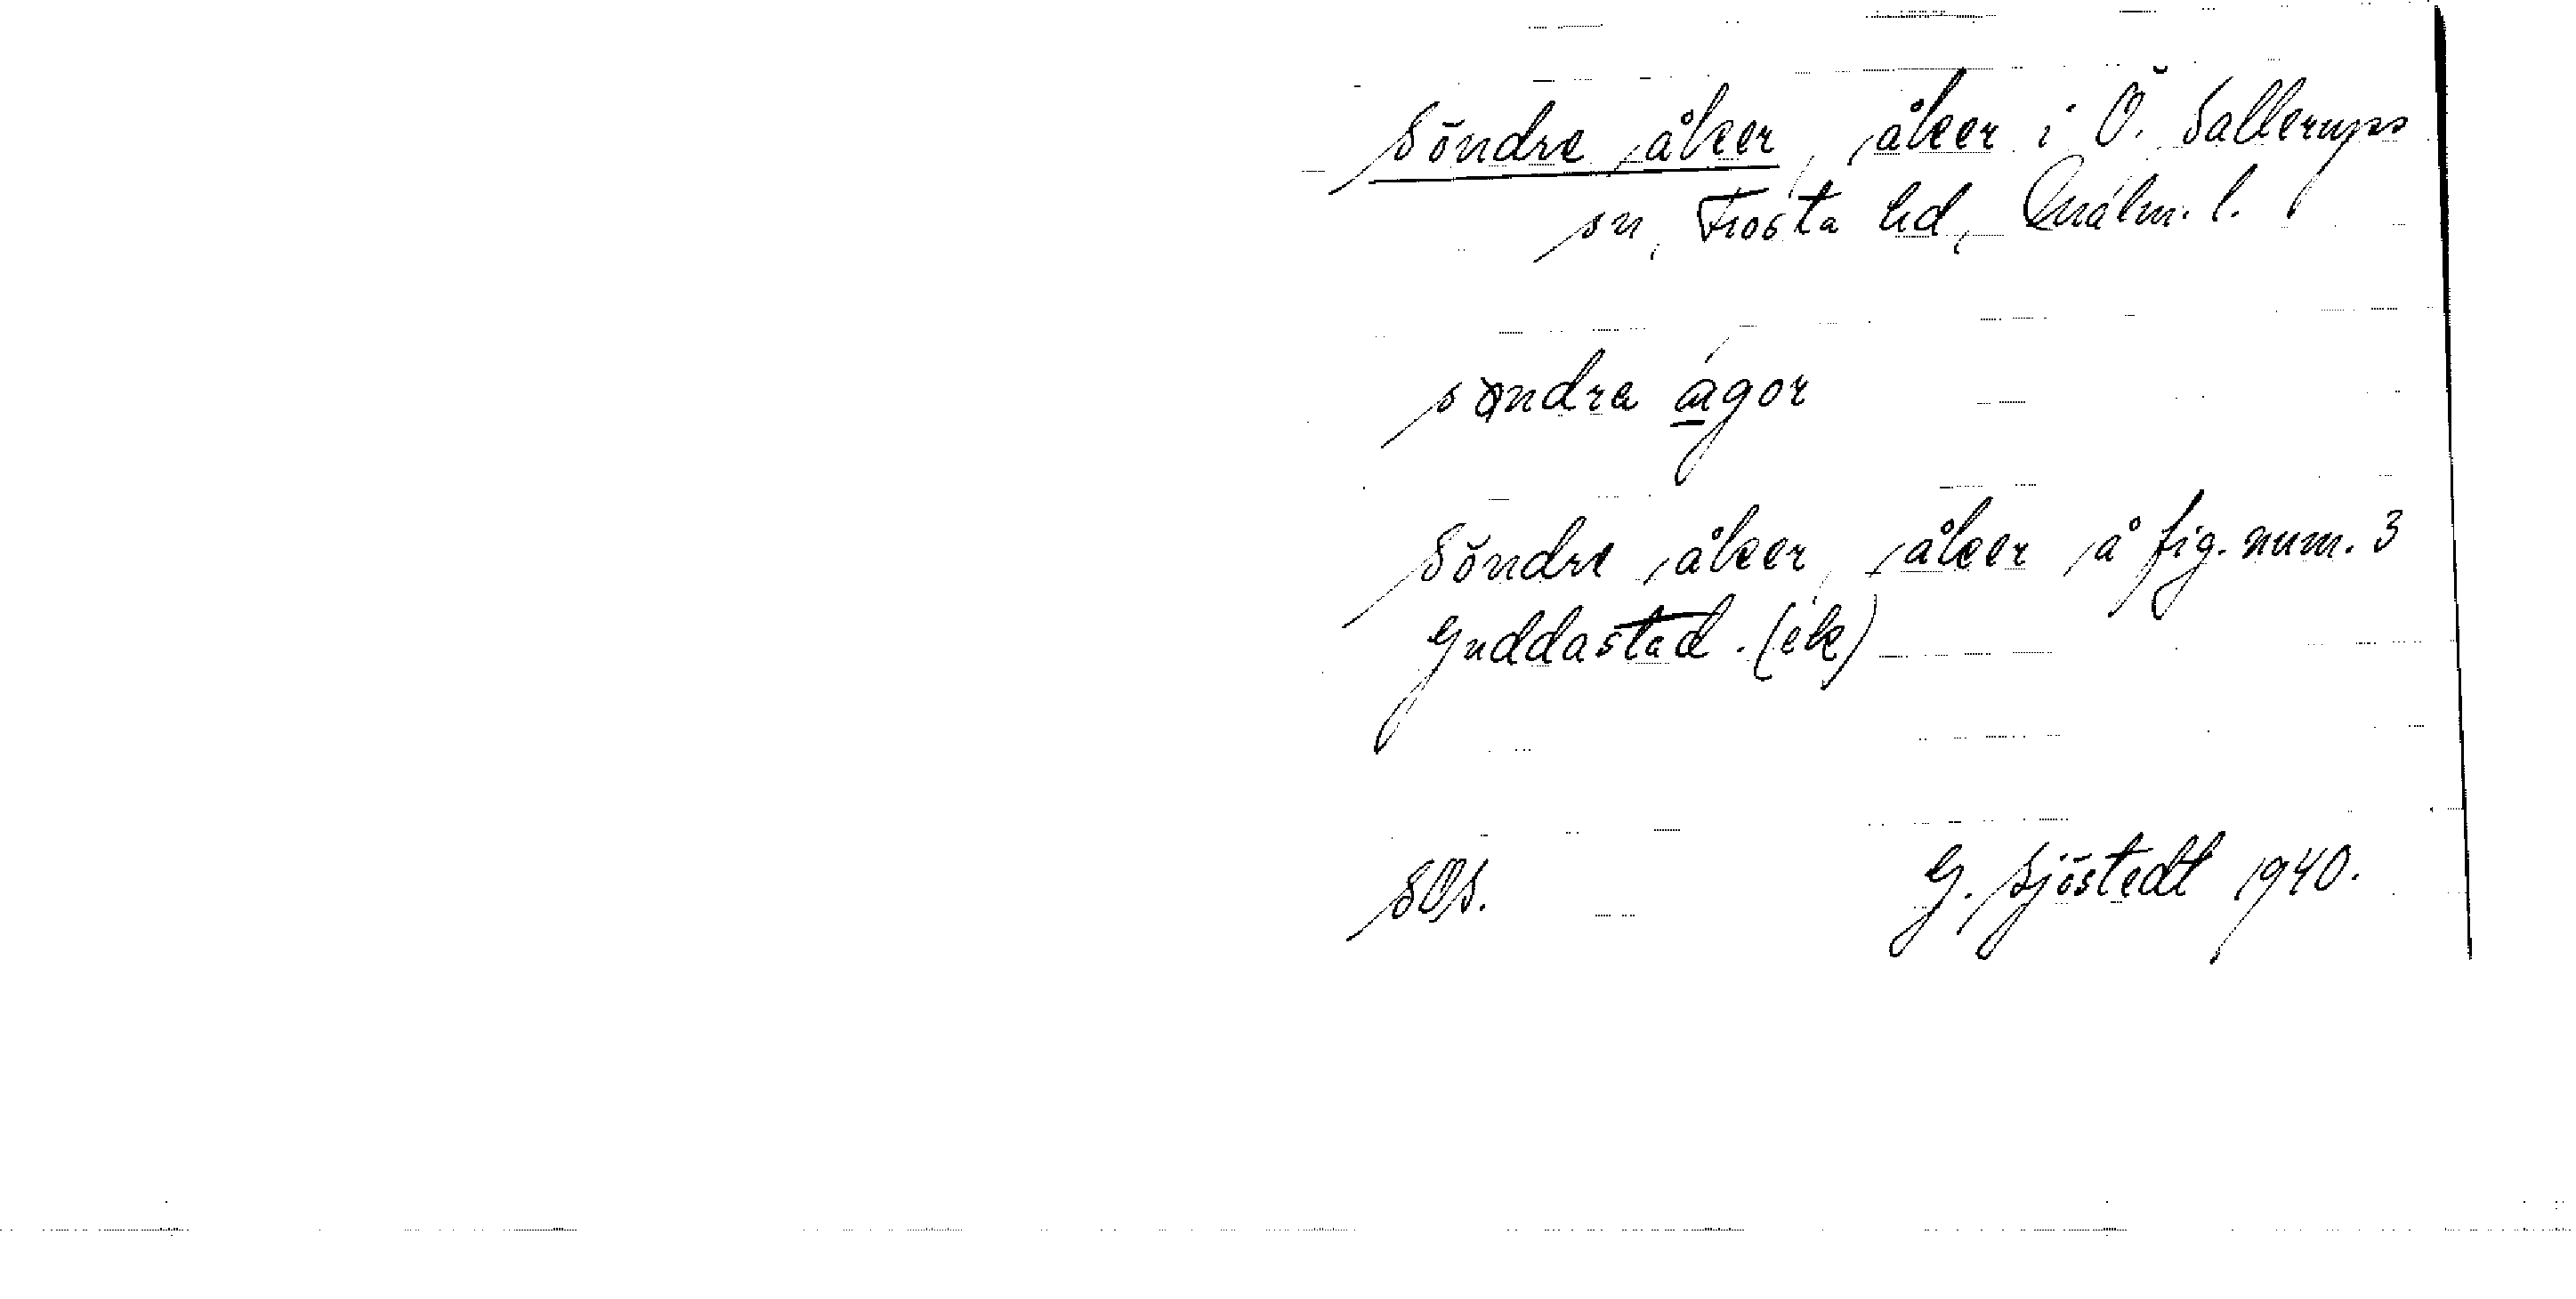 Söndre åker, åker i Ö. Sallerups
sn, Frosta hd, Malm. l.
søndra ágor
Söndre åker, åker å fig. num. 3
Guddastad. (ek)
SOS. G. Sjöstedt 1940.